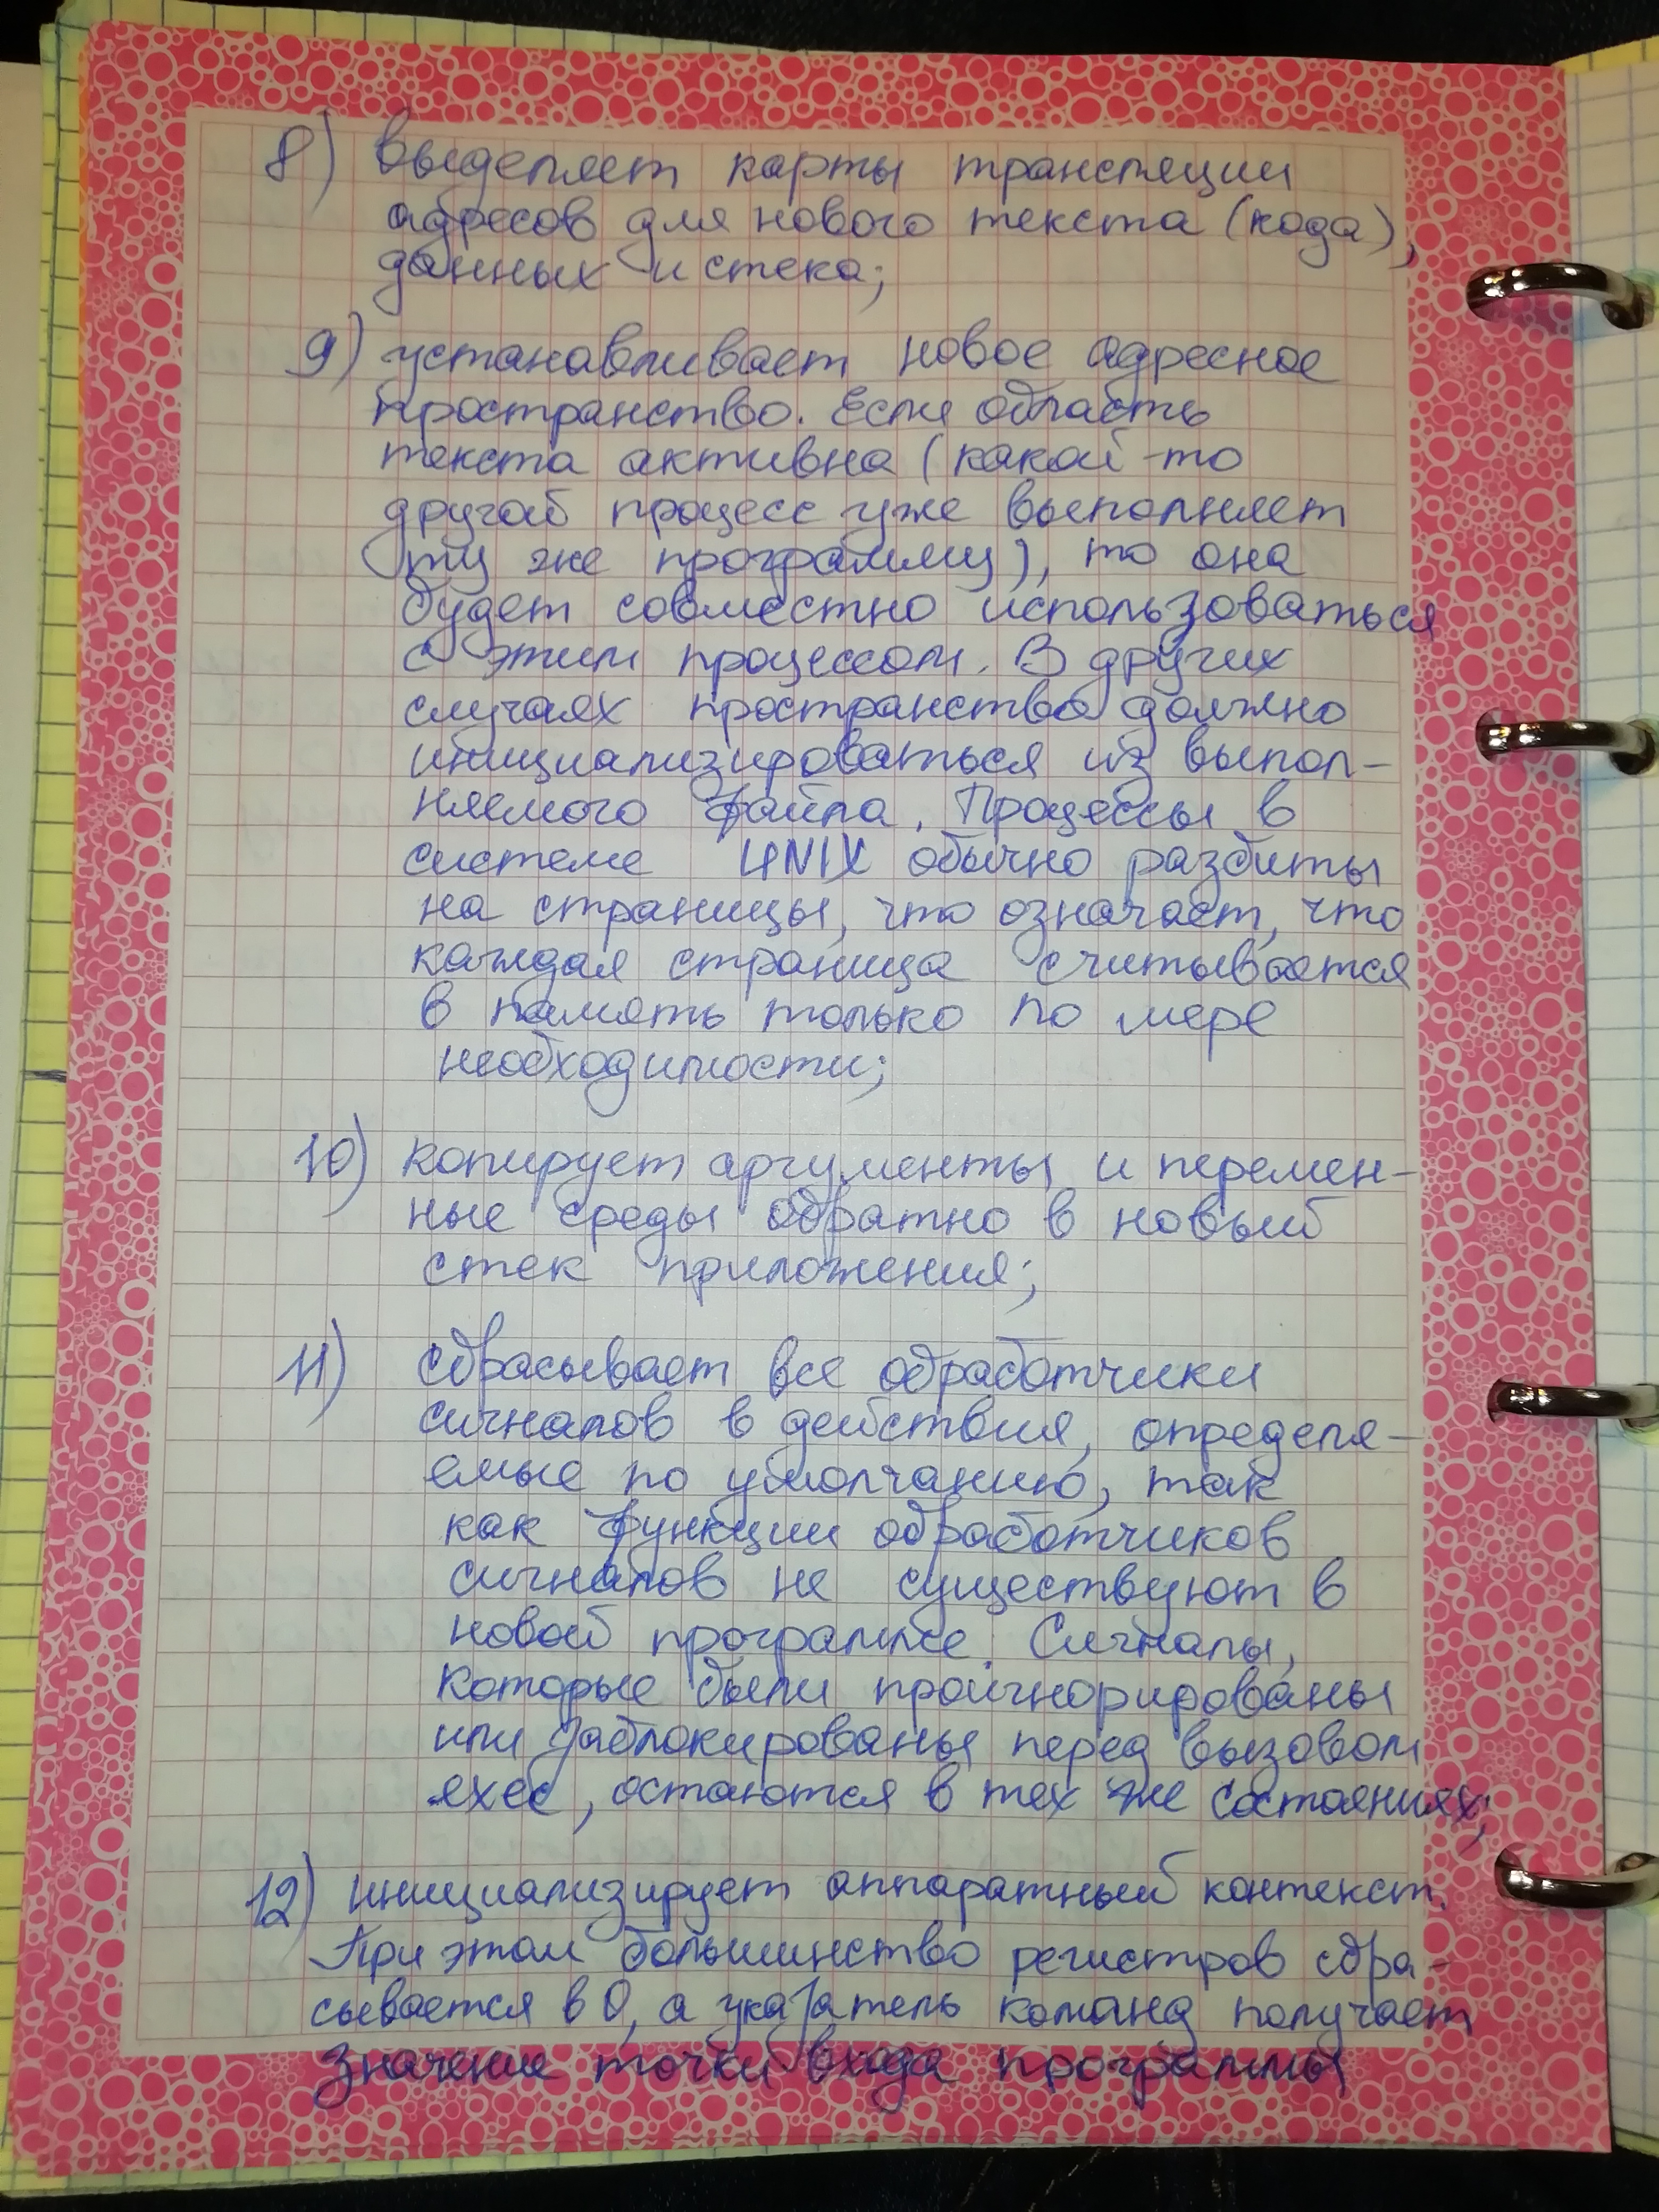 8) выделяет карты трансляции
адресов для нового текста (кода),
данных и стека;
9) устанавливает новое адресное
пространство. Если область
текста активна (какой-то
другой процесс уже выполняет
ту же программу), то она
будет совместно использоваться
с этим процессом. В других
случаях пространство должно
инициализироваться из выпол-
няемого файла. Процессы в
системе UNIX обычно разбиты
на страницы, что означает, что
каждая страница считывается
в память только по мере
необходимости;
10) копирует аргументы и перемен-
ные среды обратно в новый
стек приложения;
11) сбрасывает все обработчики
сигналов в действия, определя-
емые по умолчанию, так
как функции обработчиков
сигналов не существуют в
новой программе. Сигналы,
которые были проигнорированы
или заблокированы перед вызовом
exec, остаются в тех же состояниях;
12) инициализирует аппаратный контекст.
При этом большинство регистров сбра-
сывается в 0, а указатель команд получает
значение точки входа программы